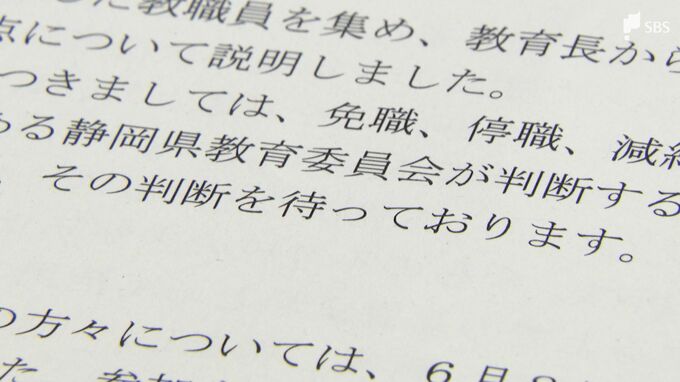 SBS
した教職員を集め、教育長から
点について説明しました。
つきましては、免職、停職、減給
ある静岡県教育委員会が判断する
、その判断を待っております。
の方々については、6月